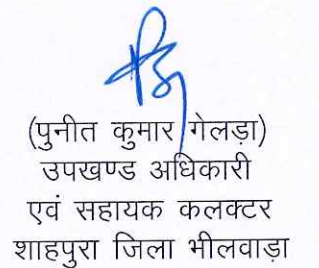 (पुनीत कुमार गेलड़ा)
उपखण्ड अधिकारी
एवं सहायक कलक्टर
शाहपुरा जिला भीलवाड़ा